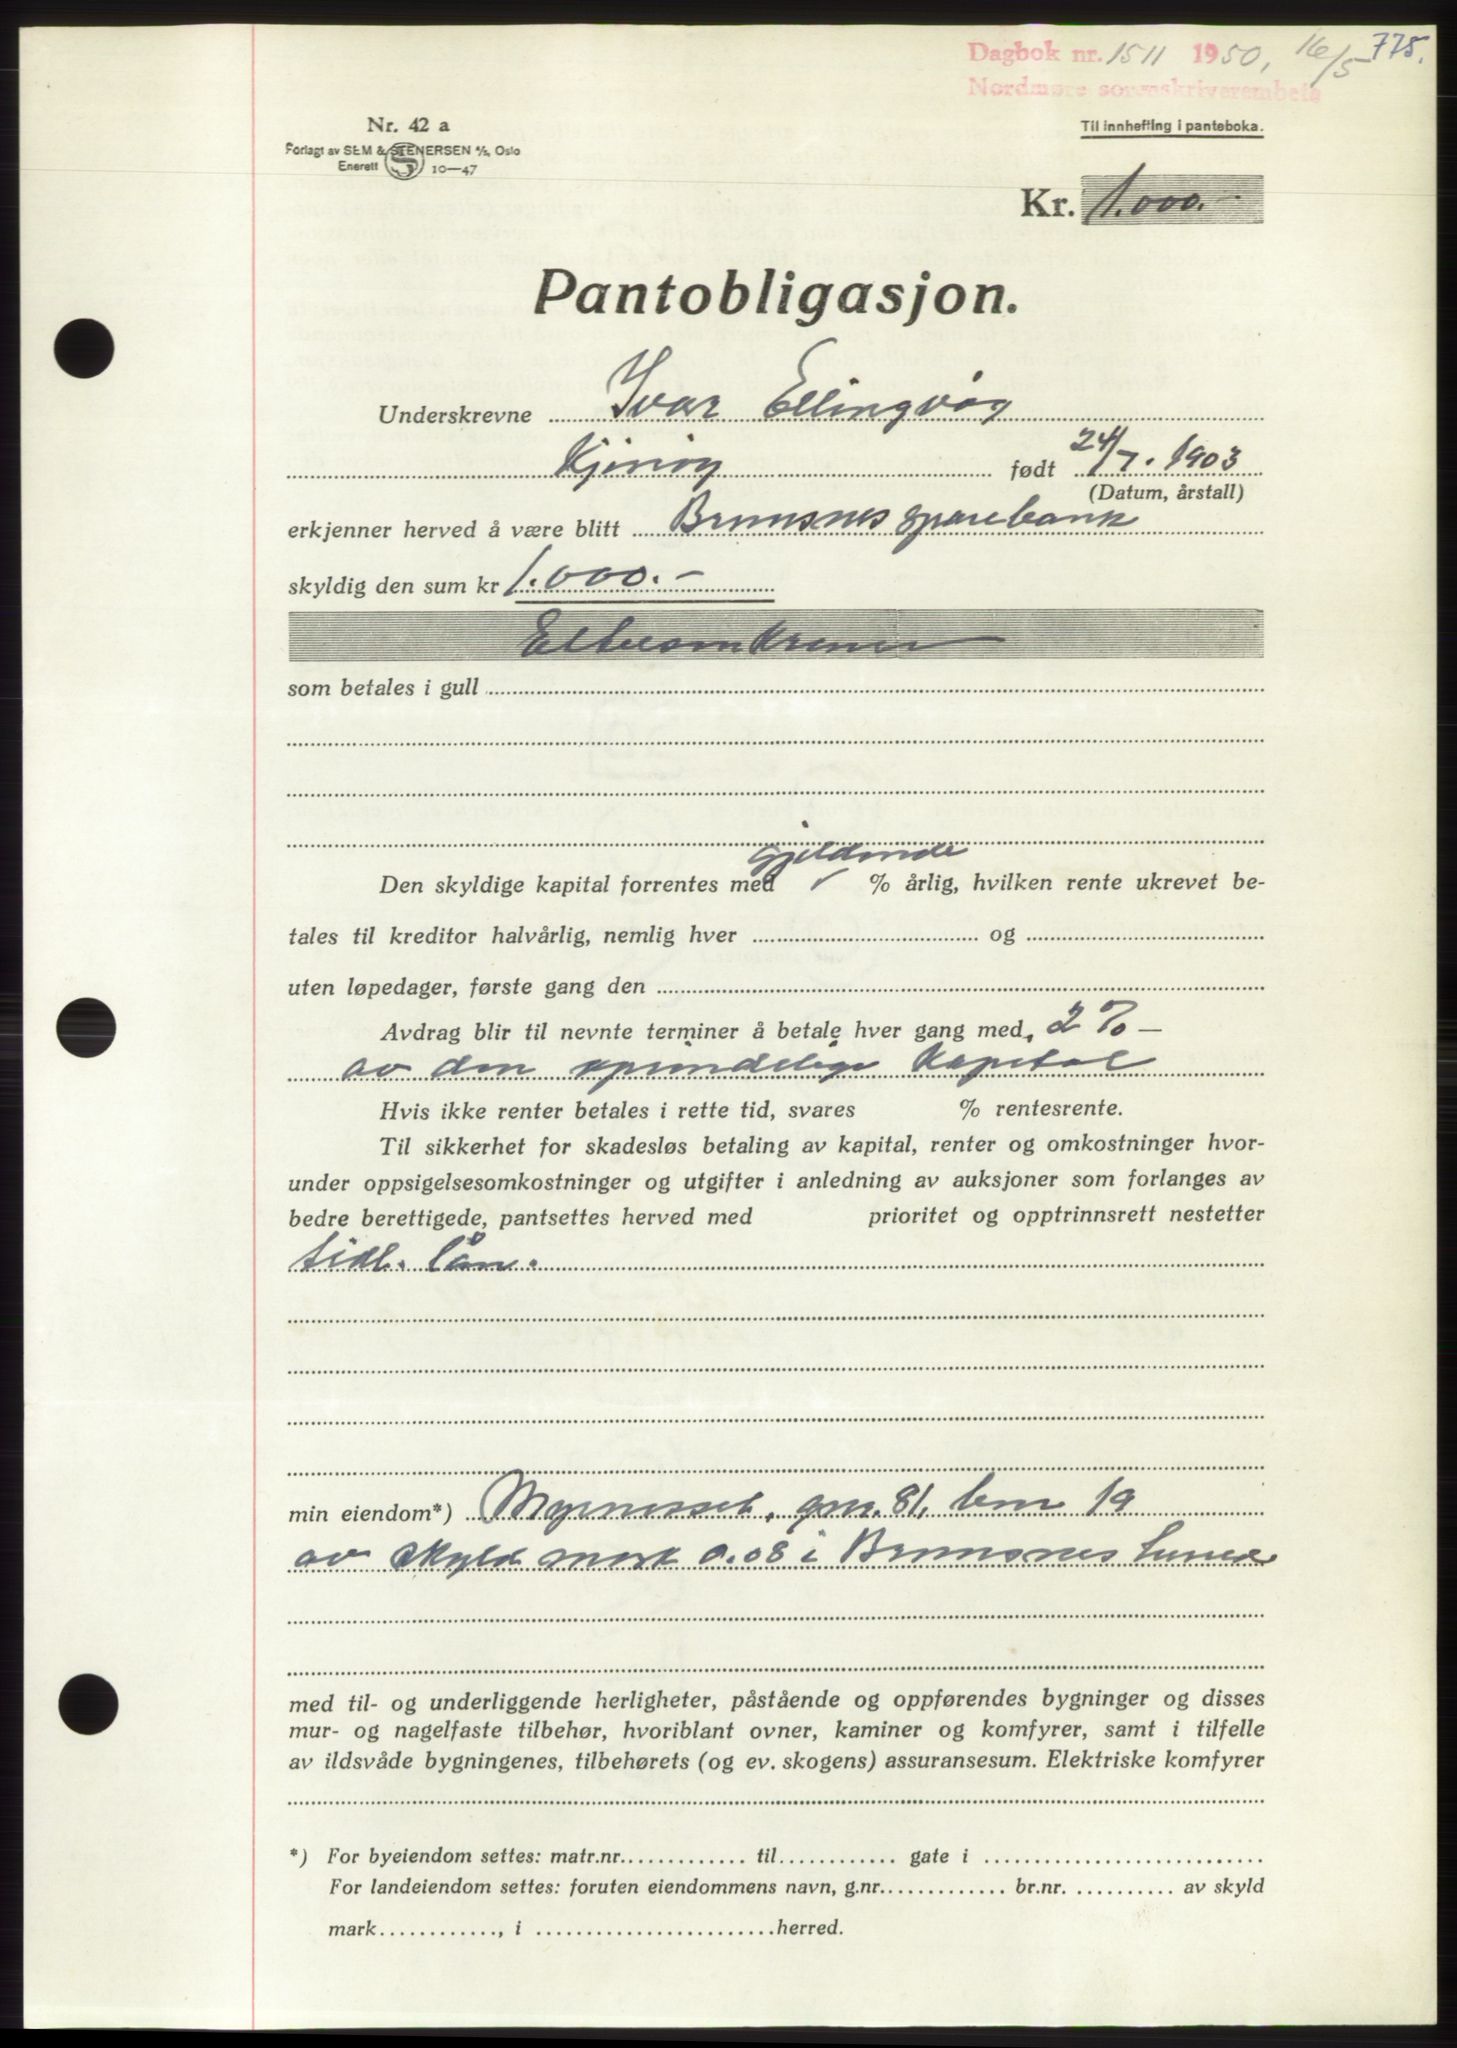 Dagbok nr. 1511 1950, 16/5 775.
Nordmøre sorenskriverembete
Nr. 42 a
Forlagt av SEM & STENERSEN A/S, Oslo
Enerett S 10—47
Til innhefting i panteboka.
Kr. 1.000.-
Pantobligasjon.
Underskrevne Ivar Ellingvåg
født 24/7. 1903
(Datum, årstall)
erkjenner herved å være blitt Bremsnes sparebank
skyldig den sum kr 1.000.-
Ettusen kroner
som betales i gull
gjeldende
Den skyldige kapital forrentes med % årlig, hvilken rente ukrevet be-
tales til kreditor halvårlig, nemlig hver og
uten løpedager, første gang den
Avdrag blir til nevnte terminer å betale hver gang med 2% —
av den oprindelige kapital
Hvis ikke renter betales i rette tid, svares % rentesrente.
Til sikkerhet for skadesløs betaling av kapital, renter og omkostninger hvor-
under oppsigelsesomkostninger og utgifter i anledning av auksjoner som forlanges av
bedre berettigede, pantsettes herved med prioritet og opptrinnsrett nestetter
tidl. lån.
min eiendom*) gnr. 81, bnr 19
av skyld mark 0.08 i Bremsnes herred
med til- og underliggende herligheter, påstående og oppførendes bygninger og disses
mur- og nagelfaste tilbehør, hvoriblant ovner, kaminer og komfyrer, samt i tilfelle
av ildsvåde bygningenes, tilbehørets (og ev. skogens) assuransesum. Elektriske komfyrer
*) For byeiendom settes: matr.nr. til gate i
For landeiendom settes: foruten eiendommens navn, g.nr. br.nr. av skyld
mark , i herred.